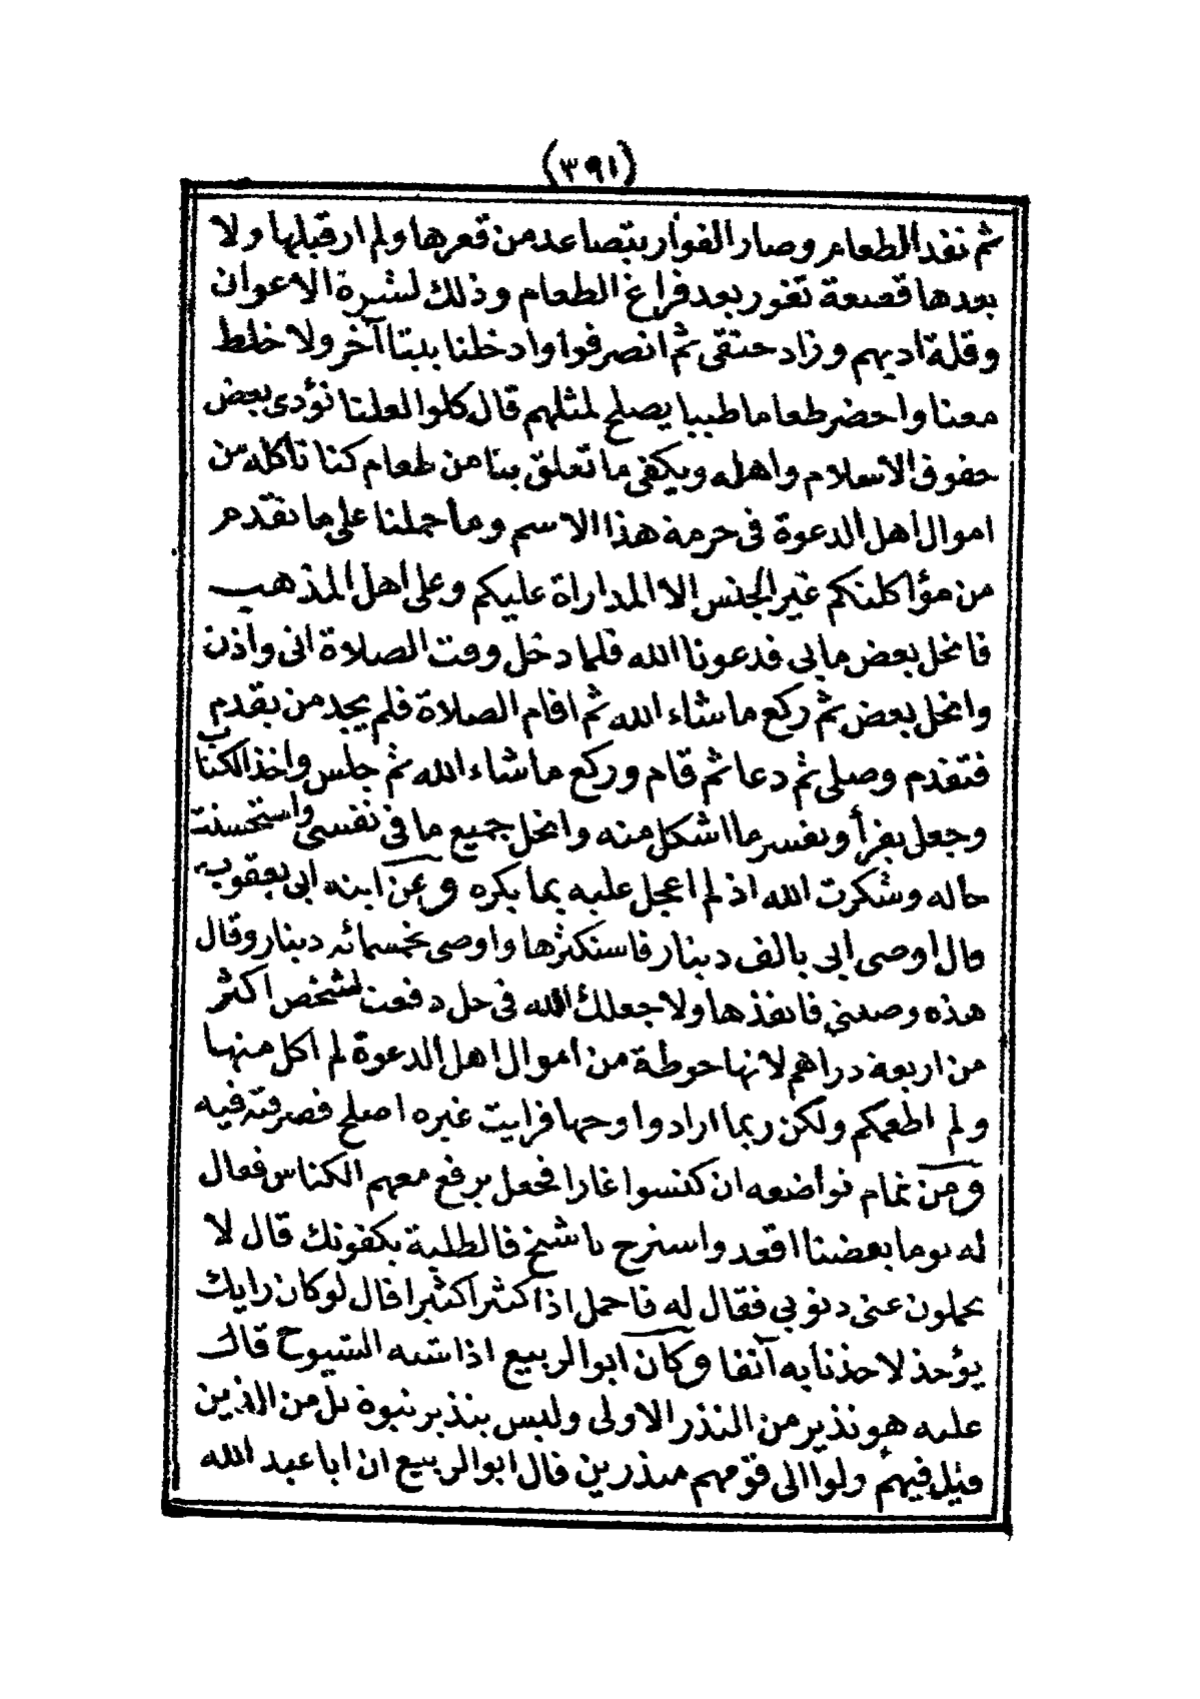 (٣٩١)
ثم نفد الطعام وصار الفوار يتصاعد من قعرها ولم ار قبلها ولا
بعدها قصعة تفور بعد فراغ الطعام وذلك لشرة الاعوان
وقلة ادبهم وزاد حنقى ثم انصرفوا وادخلنا بيتا آخر ولا خلط
معنا واحضر طعاما طيبا يصلح لمثلهم قال كلوا لعلنا نؤدى بعض
حقوق الاسلام واهله ويكفى ما تعلق بنا من طعام كنا نأكله من
اموال اهل الدعوة فى حرمة هذا الاسم وما حملنا على ما تقدم
من مؤاكلتكم غير الجنس الا المداراة عليكم وعلى اهل المذهب
فانحل بعض ما بى فدعونا الله فلما دخل وقت الصلاة اتى واذن
وانحل بعض ثم ركع ما شاء الله ثم اقام الصلاة فلم يجد من يقدم
فتقدم وصلى ثم دعا ثم قام وركع ما شاء الله ثم جلس واخذ الكتاب
وجعل يقرأ ويفسر ما اشكل منه وانحل جميع ما فى نفسى واستحسنت
حاله وشكرت الله اذ لم اعجل عليه بما يكره وعن ابنه ابى يعقوب
قال اوصى ابى بالف دينار فاستكثرها واوصى بخمسمائه دينار وقال
هذه وصيتى فانفذها ولا جعلك الله فى حل دفعت لشخص اكثر
من اربعة دراهم لانها حوطة من اموال اهل الدعوة لم اكل منها
ولم اطعمكم ولكن ربما ارادوا وجها فرايت غيره اصلح فصرفته فيه
ومن تمام تواضعه ان كنسوا غارا فجعل يرفع معهم الكناس فقال
له يوما بعضنا اقعد واسترح يا شيخ فالطلبة يكفونك قال لا
يحملون عنى ذنوبى فقال له فاحمل اذا كثيرا كثيرا قال لو كان رايك
يؤخذ لاخذنا به آنفا وكان ابو الربيع اذا شبه الشيوخ قال
عليه هو نذير من النذر الاولى وليس بنذير نبوة بل من الذين
قيل فيهم ولوا الى قومهم منذرين قال ابو الربيع ان ابا عبد الله